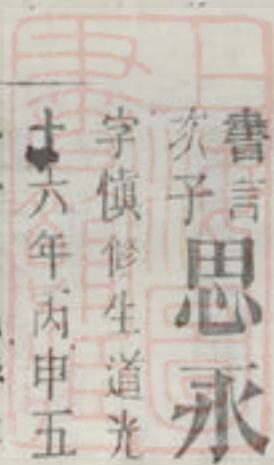 書言
次子
思永
字慎修生道光
十六年丙申五